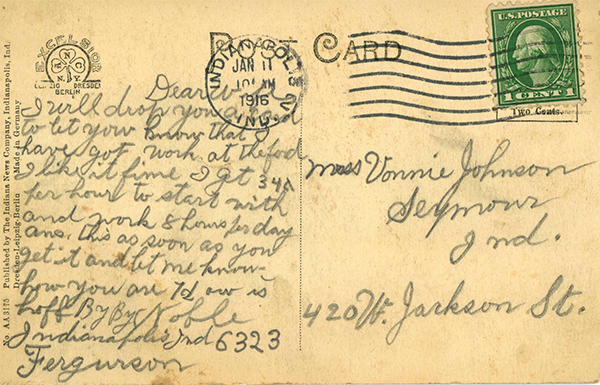 EXCELSIOR
A N C
N.Y.
LEIPZIG DRESDEN
BERLIN
CARD
INDIANAPOLIS
JAN 11
1916
IND.
U.S. POSTAGE
1 CENT 1
Two Cents.
No AA3175 Published by The Indiana News Company, Indianapolis, Ind.
Dresden-Leipzig-Berlin Made in Germany
Dear
I will drop you a
to let you know that I
have got work at the ford
I like it fime I get 34¢
per hour to start with
and work 8 hours per day
ans. this as soon as you
get it and let me know
how you are
hoff By By Noble
Indianapolis, Ind 6323
Fergurson
Miss Vonnie Johnson
Seymour
Ind.
420 W. Jackson St.